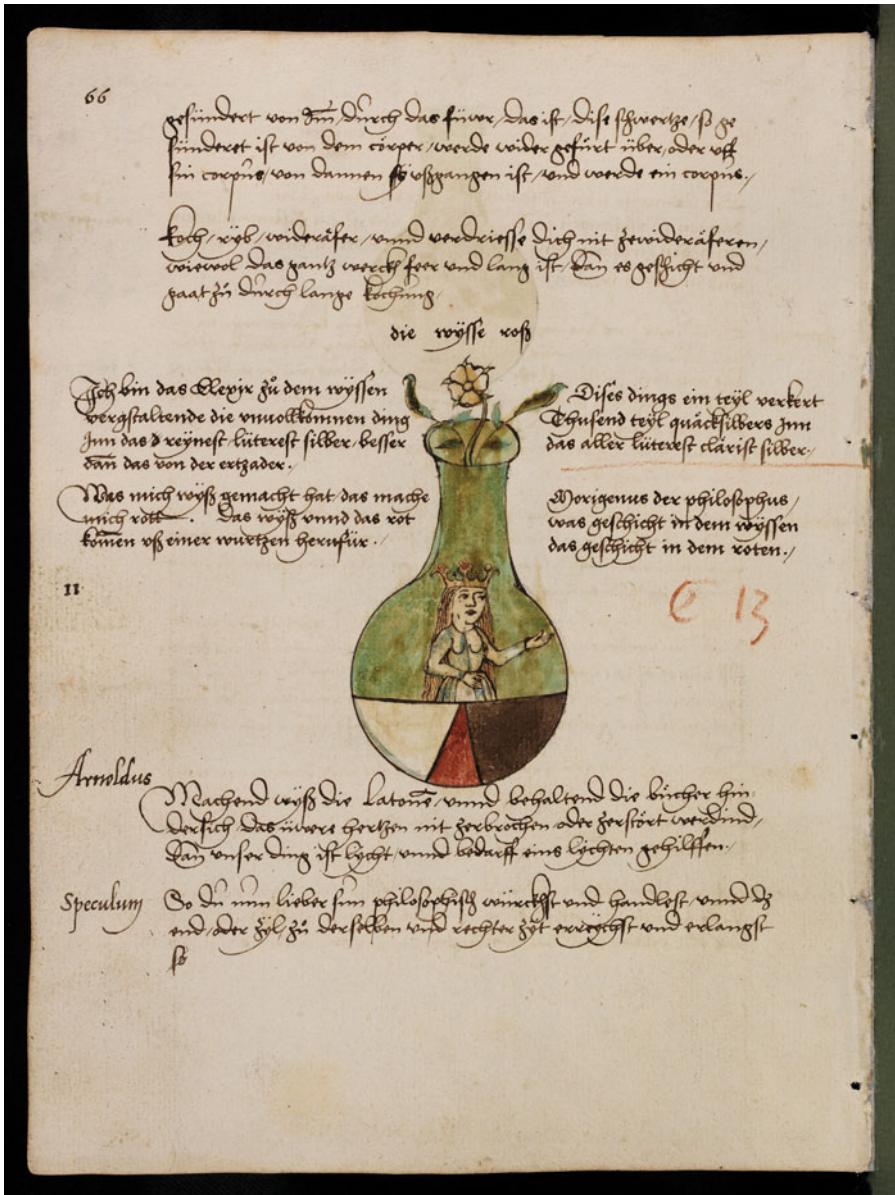 66
gesündert von Im̄, durch das füwr, das ist, dise schwertze, so ge
sünderet ist von dem cörper, werde wider gefürt über, oder vff
sin corpus, von dannen sy vßgangen ist, vnd werde ein corpus.,
Koch, ryb, wideräfer, vnnd verdriesse dich nit zewideräferen,
wiewol das gantz werck feer vnd lang ist, dañ es geschicht vnd
gaat zů durch lange kochung,
die wysse roß
Ich bin das Elexir zů dem wyssen
vergstaltende die vnuollkomnen ding
Inn das reynest lüterest silber, besser
dañ das von der ertzader.,
Dises dings ein teyl verkert
Thusend teyl quäcksilbers Inn
das aller lüterest clärist silber.,
Was mich wyß gemacht hat, das mache
mich rott. Das wyß vnnd das rot
kom̄en vß einer wurtzen herufür.,
Morigenus der philosophus,
was geschicht in dem wyssen
das geschicht in dem roten.,
11
C 13
Arnoldus
Machend wyß die Latonē, vnnd behaltend die bücher hin-
dersich, das üwere hertzen nit zerbrochen oder zerstört werdind,
dañ vnser ding ist lycht, vnnd bedarff eins lychten gehilffen.,
Speculum
So du nun lieber sun philosophisch würckst vnd handlest, vnnd dz
end, oder zyl, zů derselben vnd rechter zyt erreychst vnd erlangst
so